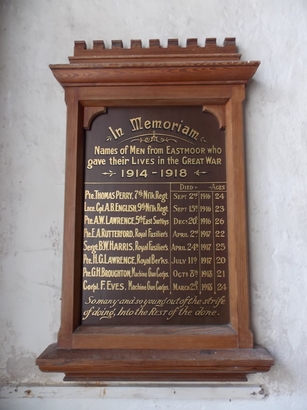 In Memoriam
Names of Men from Eastmoor who
gave their Lives in the Great War
1914 - 1918
Died - Aged
Pte. Thomas Perry, 7th Nth. Regt. Sept 2nd 1916 24
Lnce. Cpl. A.B. English, 9th Nth. Regt. Sept 15th 1916 23
Pte. A.W. Lawrence, East Surreys Dec 20th 1916 26
Pte. E.A. Rutterford, Royal Fusiliers. April 2nd 1917 22
Sergt. B.W. Harris, Royal Fusiliers. April 24th 1917 25
Pte. H.G. Lawrence, Royal Berks. July 11th 1917 20
Pte. G.H. Broughton, Machine Gun Corps. Oct 8th 1918 21
Corpl. F. Eves, Machine Gun Corps. March 25th 1918 24
So many and so young out of the strife
of doing, Into the Rest of the done.